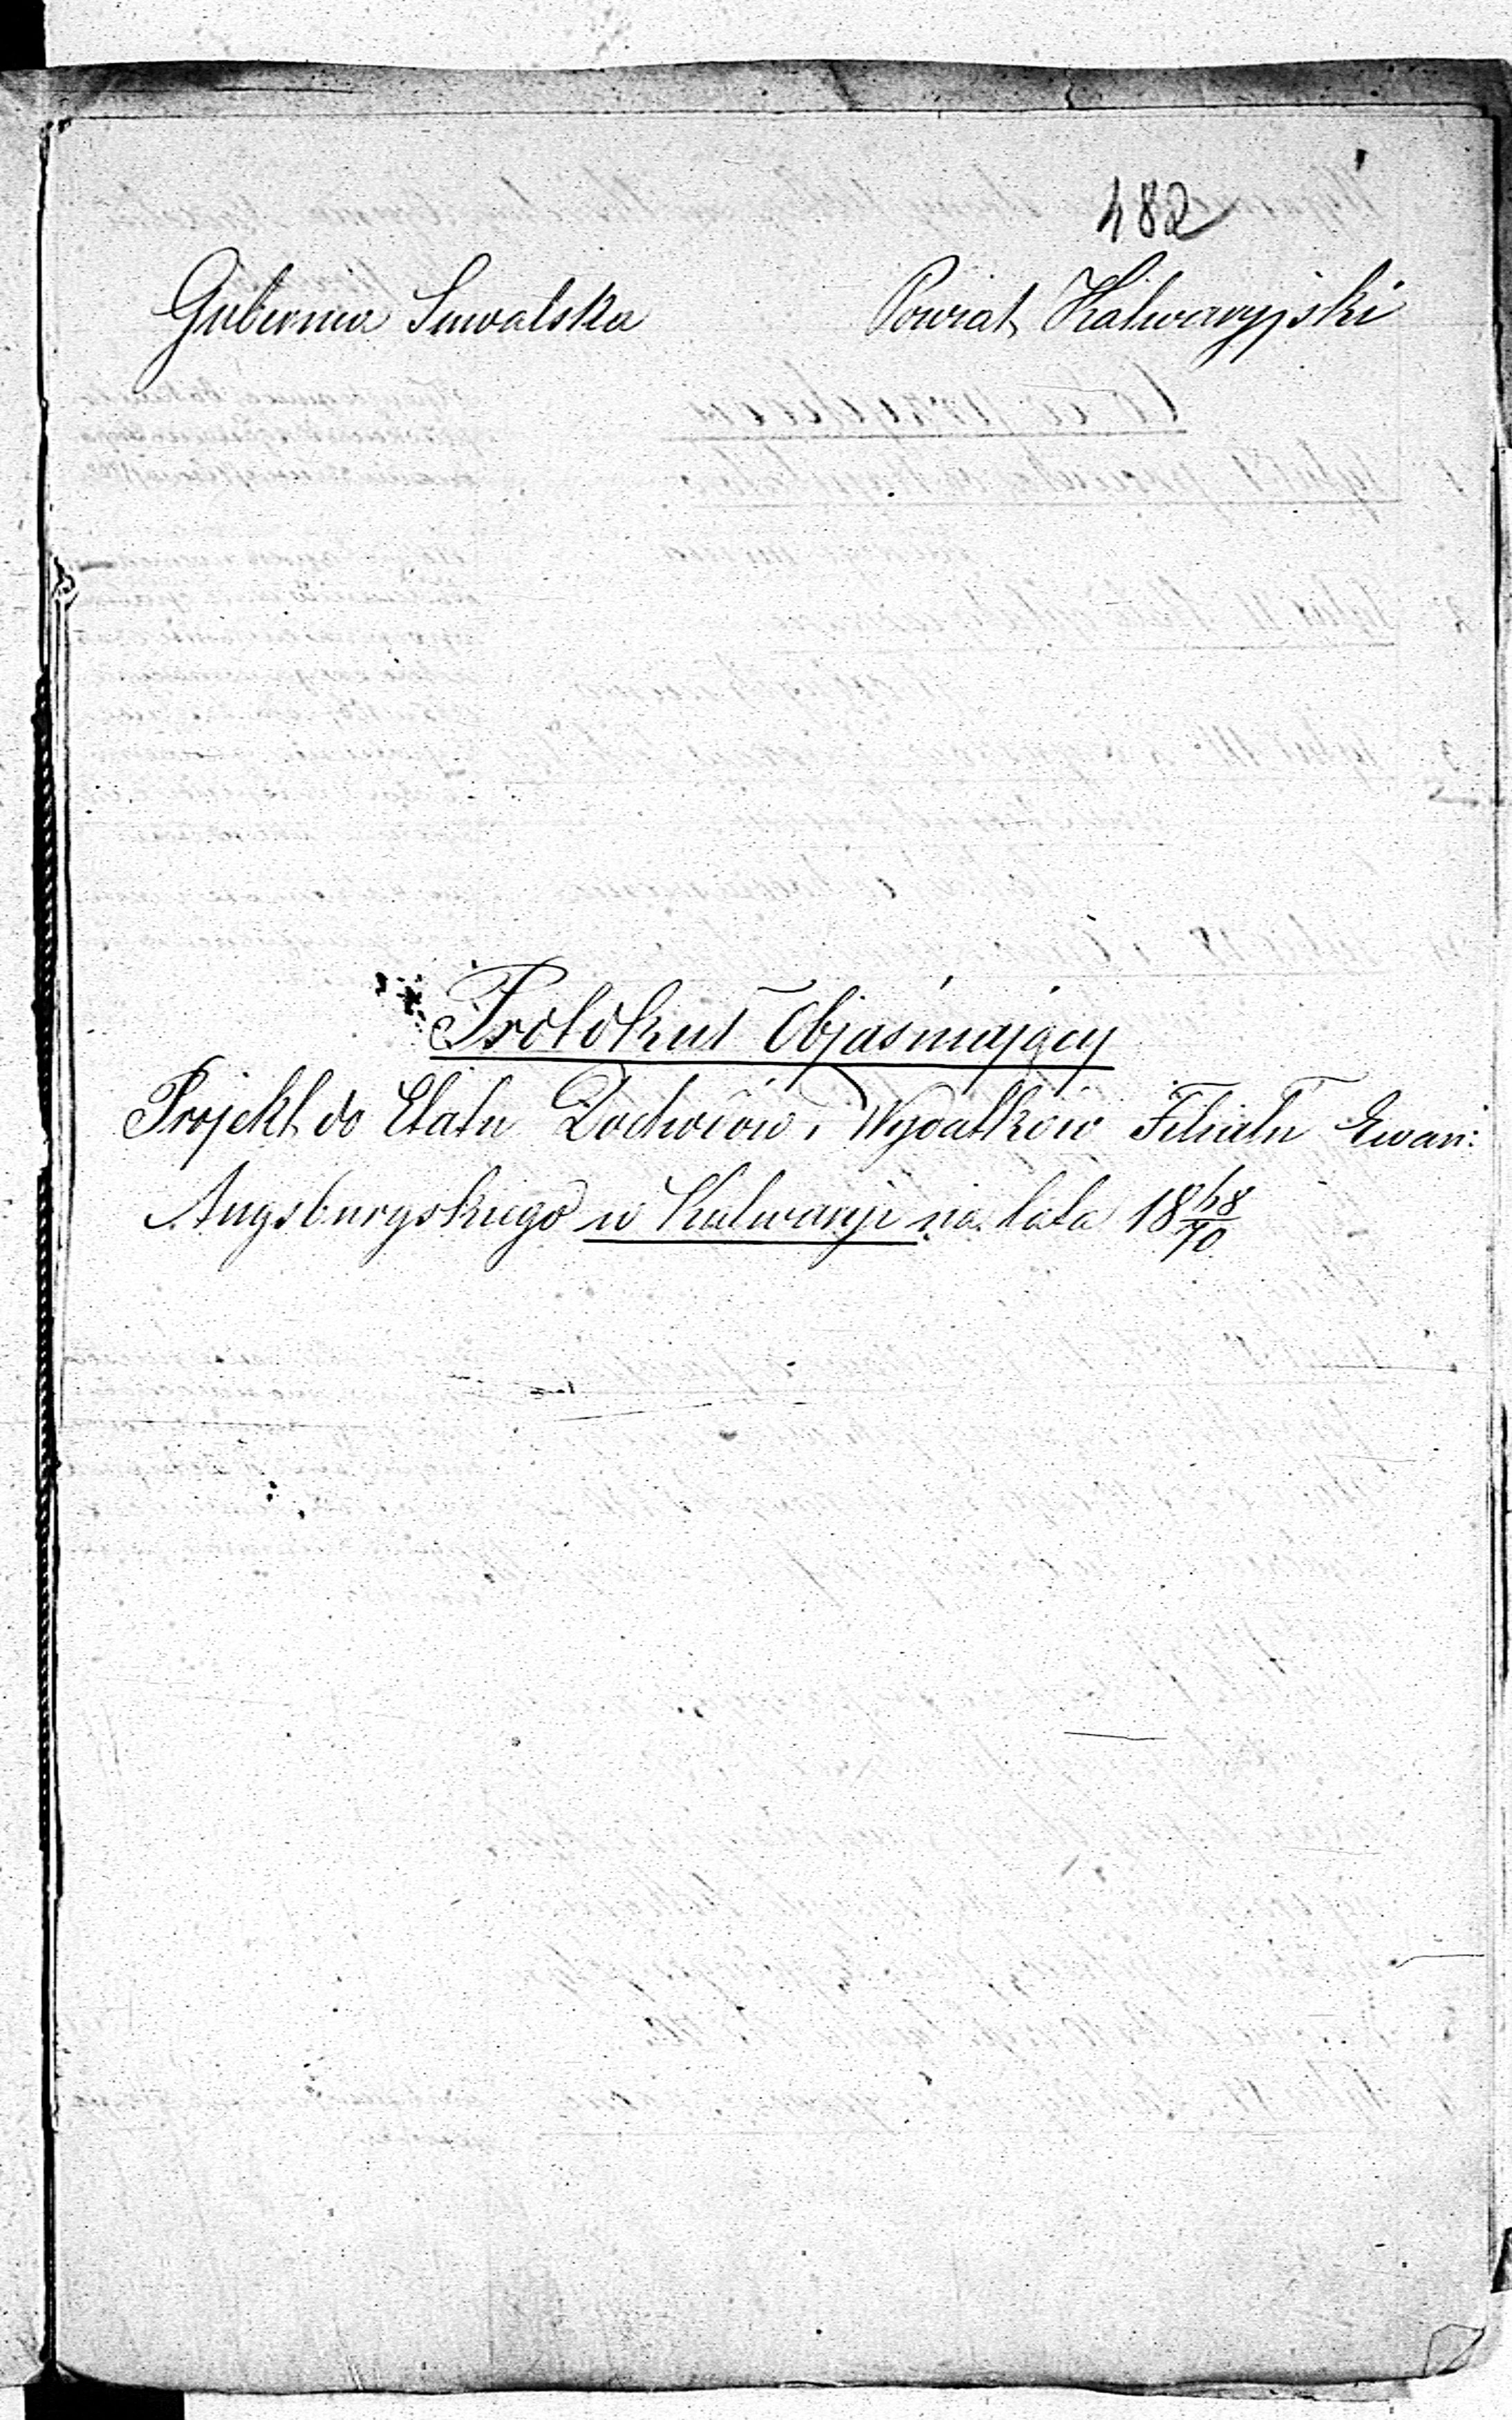 482
Gubernia Suwalska Powiat Kalwaryjski
Protokuł Objaśniający
Projekt do Etatu Dochodów i Wydatków Filiału Ewan:
Augsburgskiego w Kalwaryi na lata 18 68/70